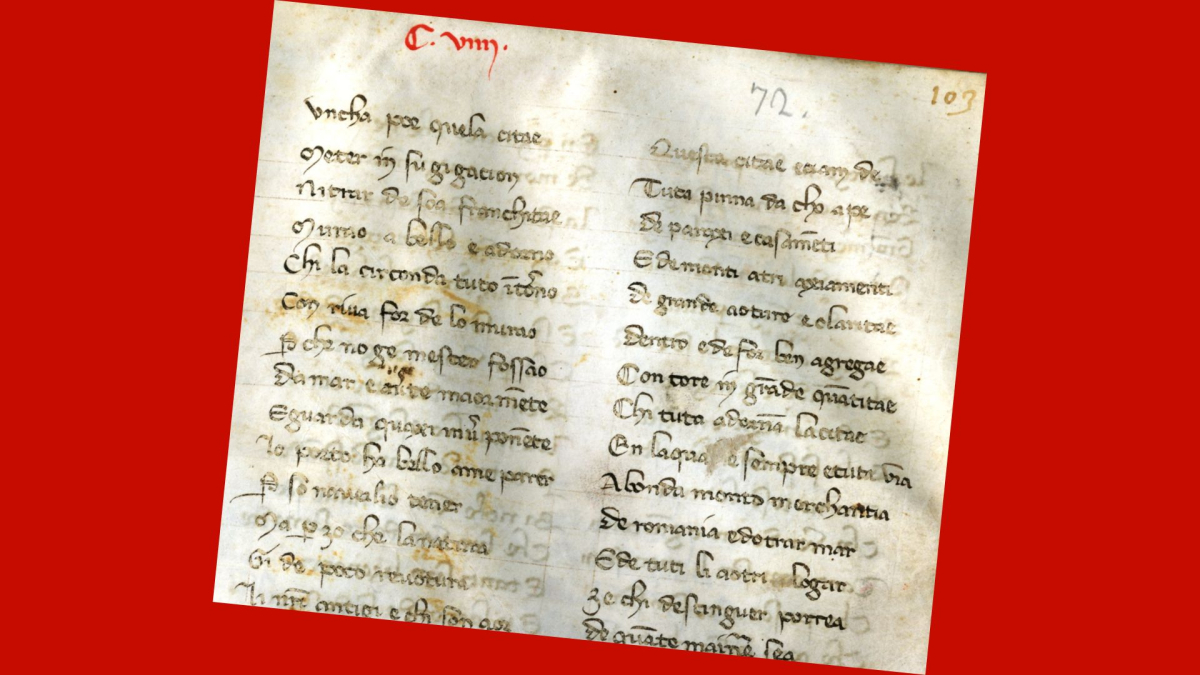 C. viiii.
72.
103
Uncha poe quela citae
Meter in su gigacion
Ni trar de soa franchitae
Murao a bello e adorno
Chi la circonda tuto ītorno
Con riva for de lo murao
P che no ge mester fossao
da mar e te maormēte
E guarda quaxe inv̄ ponēte
lo porto ha bello ame parer
P so naveilio tener
Ma p zo che la natura
Gi de poco
li nr̄i ancioi e chi son aor
Questa citae eciamde
Tuta pinna da cho a pe
de paraxi e casamēti
E de monti atri axiamenti
de grande aoture e claritae
dentro e de for ben agregae
Con tore in grāde quātitae
Chi tuta adorna la citae
En laqua e sempre e tuta via
Abonda monto merchantia
de romania e dotrar mar
E de tuti li aotri logar
Ze chi destinguer porrea
de quāte mainē sea